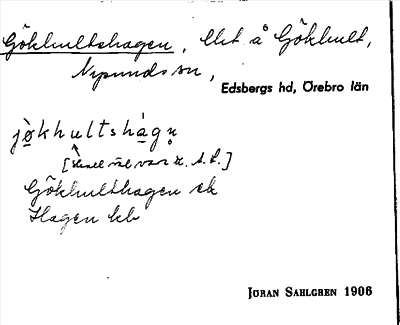 Gökhultshagen, lht å Gökhult,
Nysunds sn,
Edsbergs hd, Örebro län
jö̀khultshàgn̥
Gökhulthagen ek
Hagen kb
JÖRAN SAHLGREN 1906